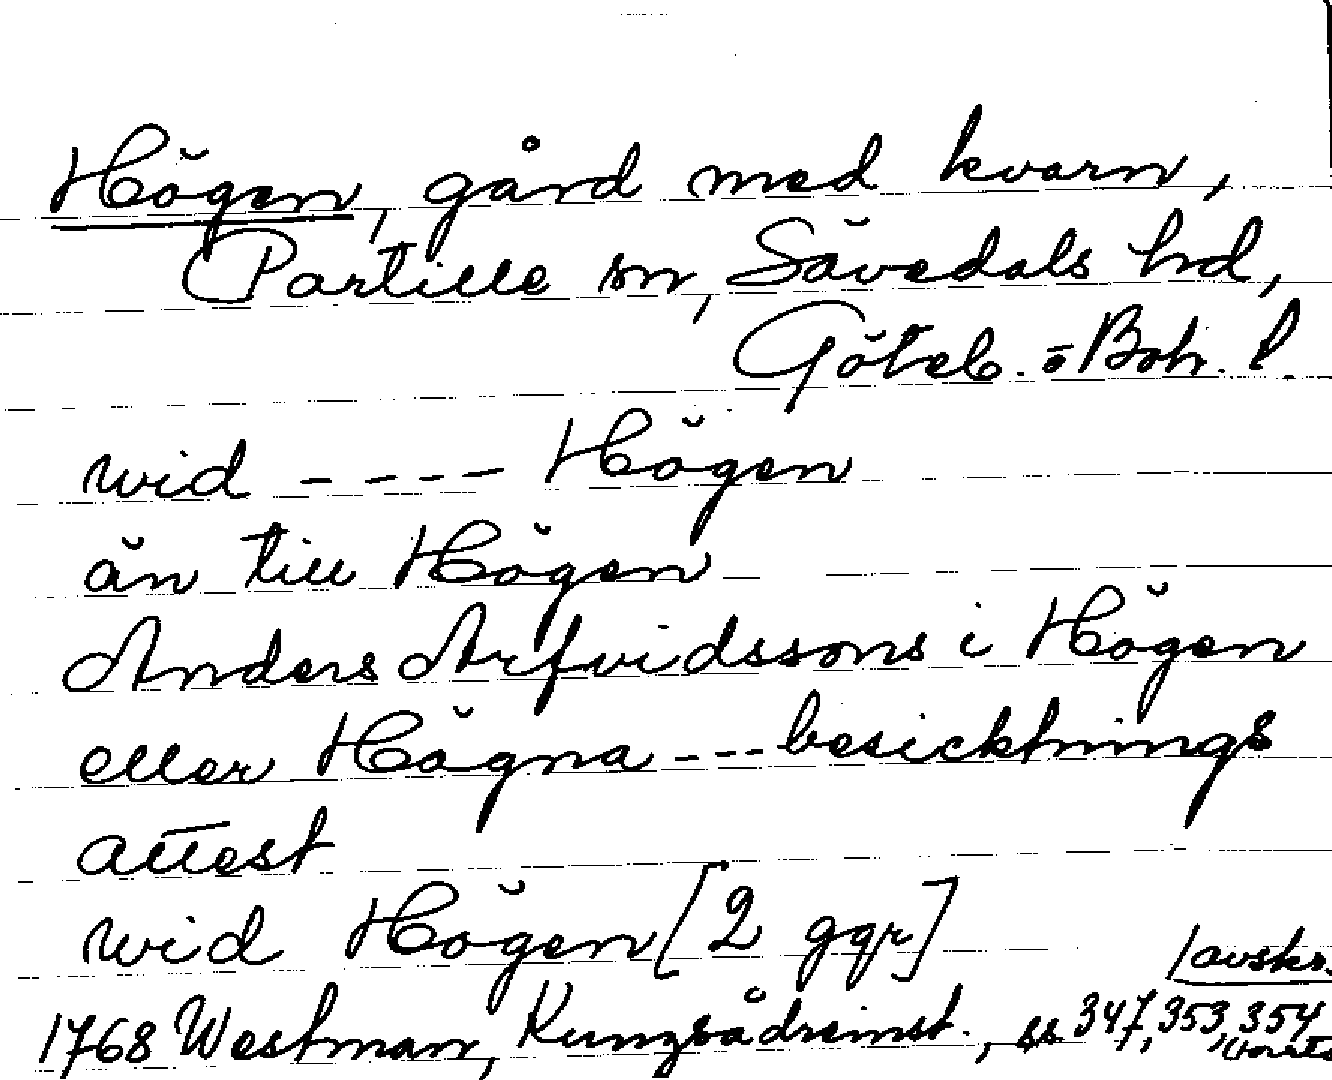 Högen, gård med kvarn,
Partille sn, Sävedals hd,
Göteb. o Boh. l.
wid ---- Högen
än till Högen
Anders Arfvidssons i Högen
eller Högna --- besicktnings
attest
wid Högen [2 ggr]
/avskr.
1768 Westman, Kungsådreinst., ss 347, 353, 354